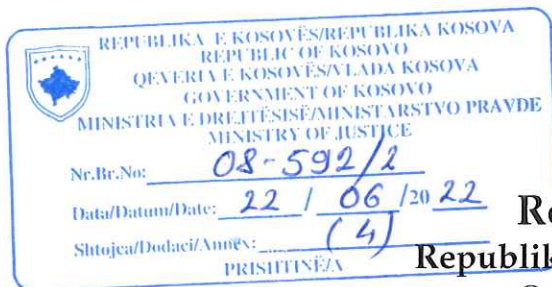 REPUBLIKA E KOSOVËS/REPUBLIKA KOSOVA
REPUBLIC OF KOSOVO
QEVERIA E KOSOVËS/VLADA KOSOVA
GOVERNMENT OF KOSOVO
MINISTRIA E DREJTËSISË/MINISTARSTVO PRAVDE
MINISTRY OF JUSTICE
Nr.Br.No: 08-592/2
Data/Datum/Date: 22 / 06 /20 22
Shtojca/Dodaci/Annex: (4)
PRISHTINË/A
Republik